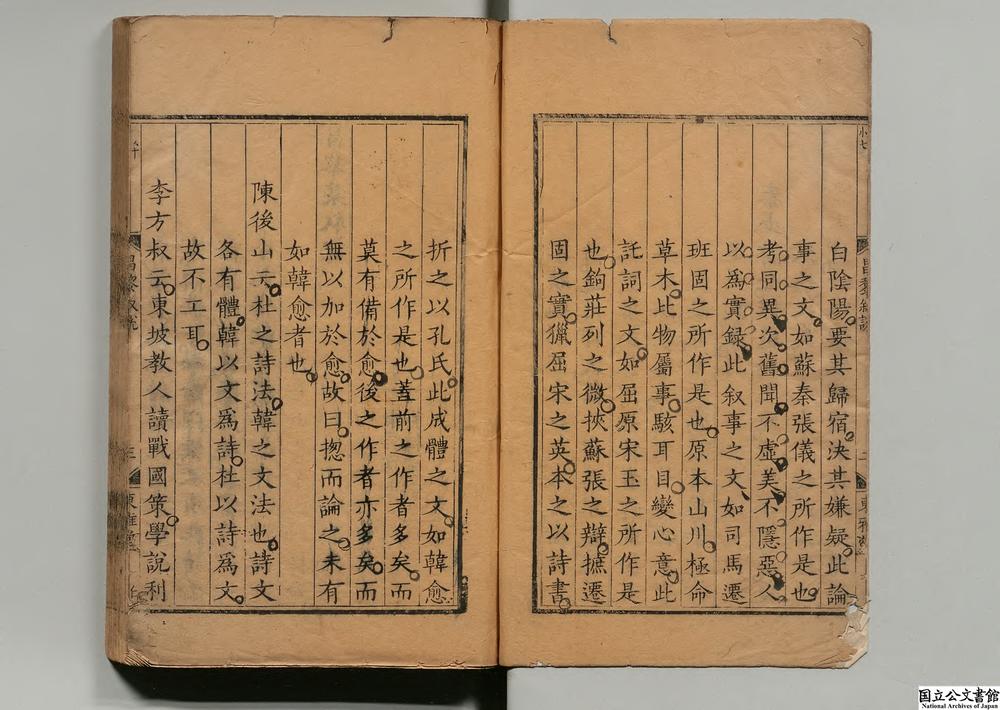 白陰陽要其歸宿決其嫌疑此論
事之文如蘇秦張儀之所作是也
考同異次舊聞不虛美不隱惡人
以爲實録此叙事之文如司馬遷
班固之所作是也原本山川極命
草木比物屬事駭耳目變心意此
託詞之文如屈原宋玉之所作是
也鉤莊列之微挾蘇張之辯摭遷
固之實獵屈宋之英本之以詩書
折之以孔氏此成體之文如韓愈
之所作是也蓋前之作者多矣而
莫有備於愈後之作者亦多矣而
無以加於愈故曰揔而論之未有
如韓愈者也
陳後山云杜之詩法韓之文法也詩文
各有體韓以文爲詩杜以詩爲文
故不工耳
李方叔云東坡教人讀戰國策學説利
昌黎叙説
三
東雅堂
国立公文書館
National Archives of Japan